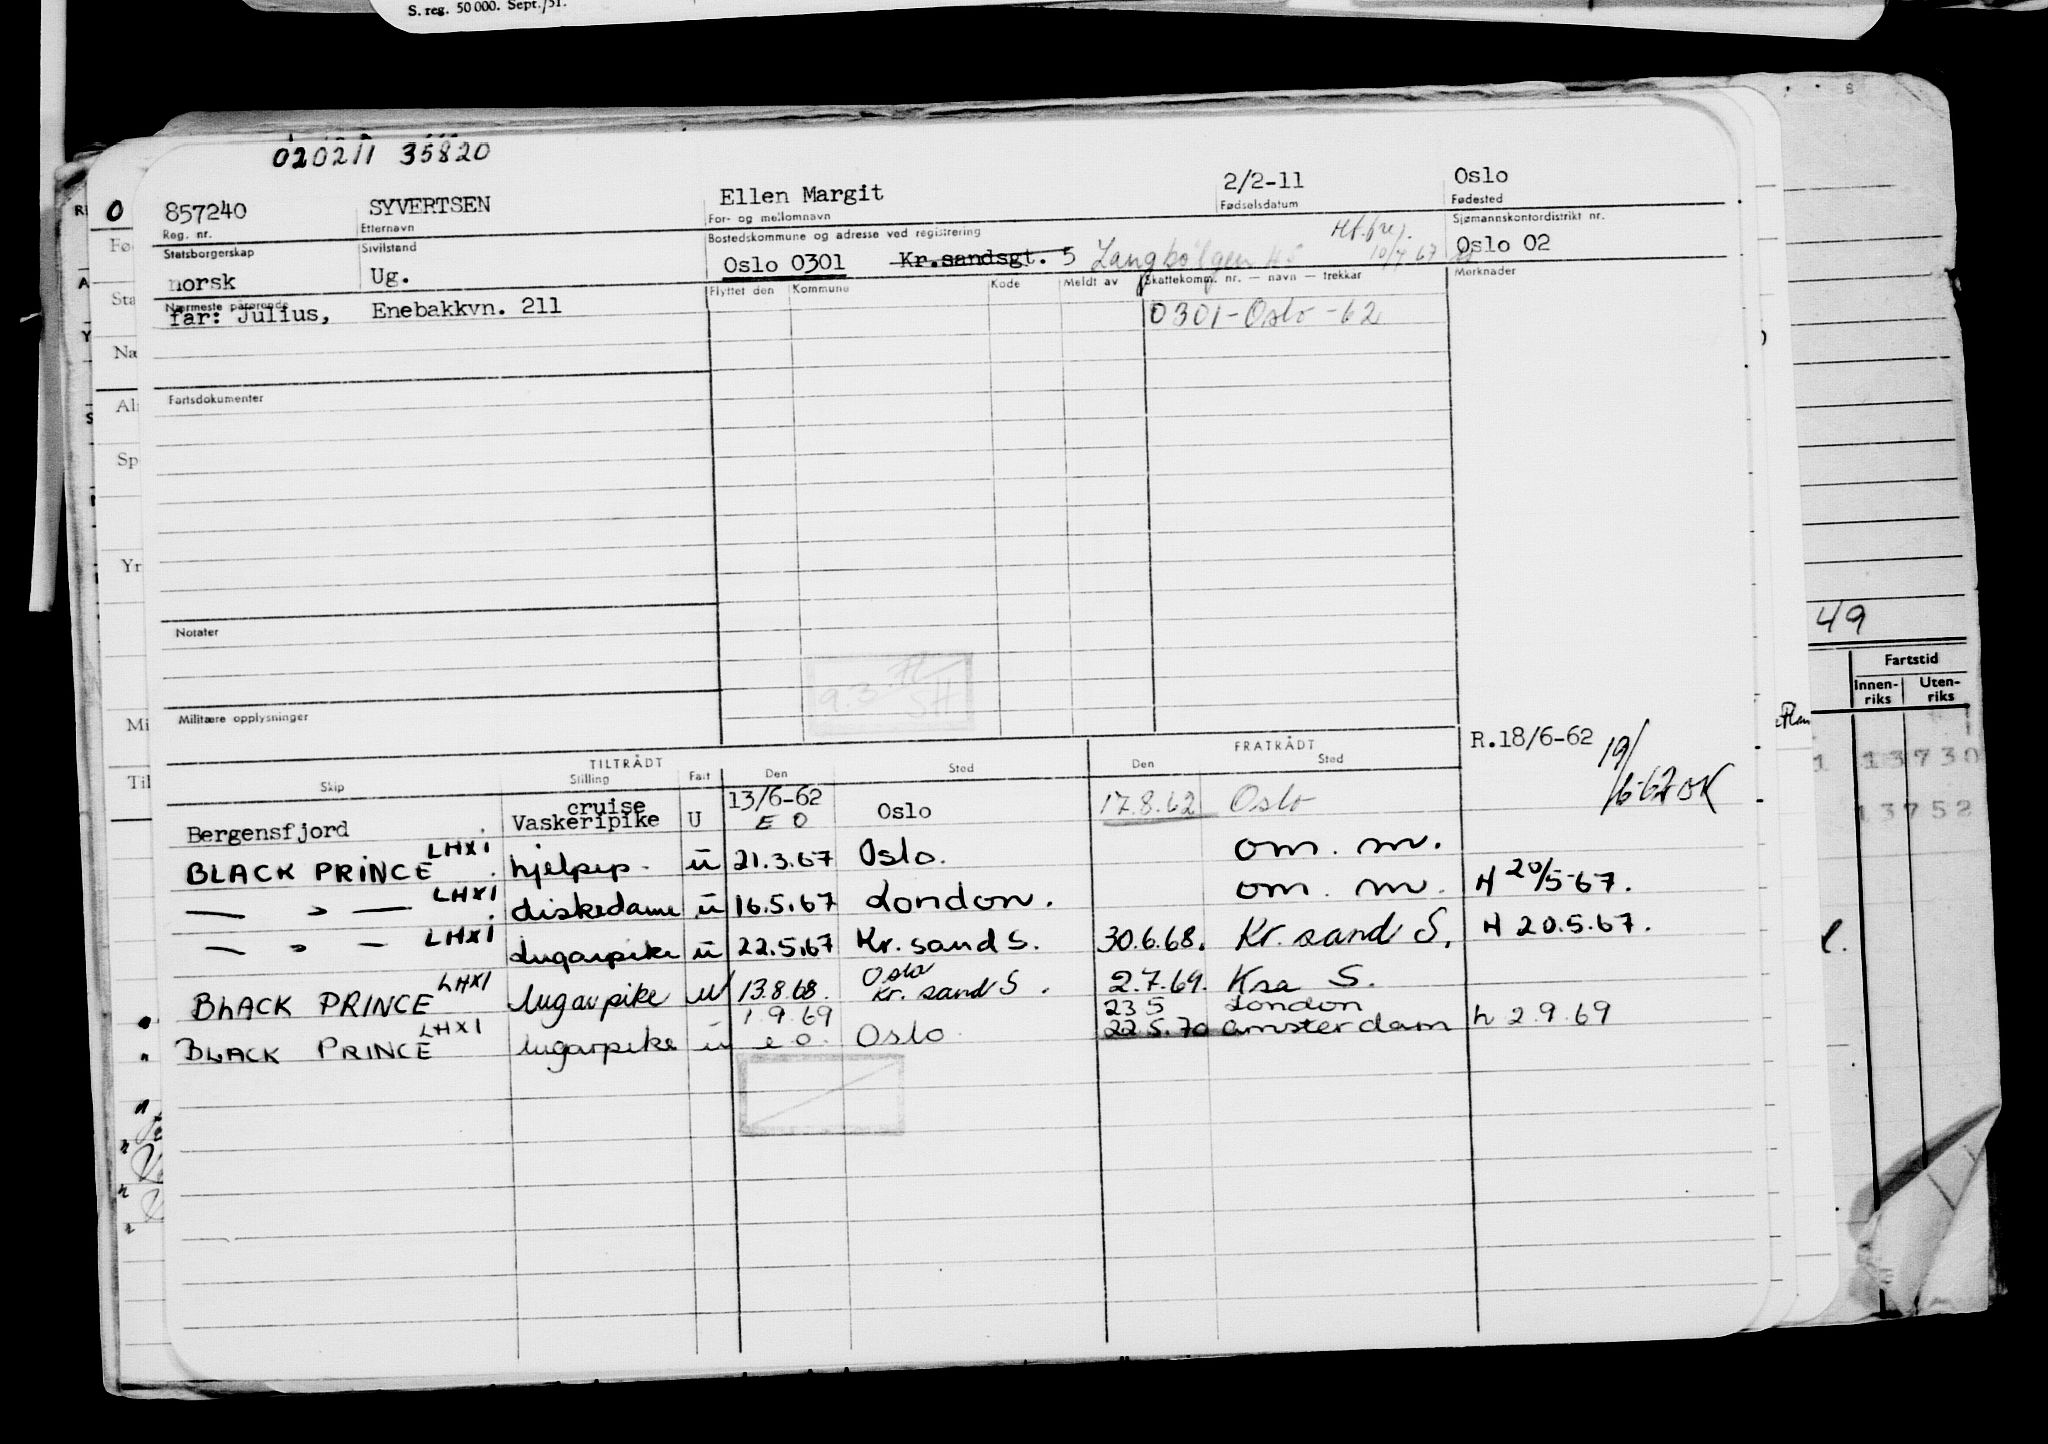 S. reg. 50 000. Sept./51.
020211 35820
857240 SYVERTSEN Ellen Margit 2/2-11 Oslo
Reg. nr. Etternavn For- og mellomnavn Fødselsdatum Fødested
Statsborgerskap Sivilstand Bostedskommune og adresse ved registrering Sjømannskontordistrikt nr.
norsk Ug. Oslo 0301 Kr.sandsgt. 5 Langbølgen 10/4 67 Oslo 02
Nærmeste pårørende Flyttet den Kommune Kode Meldt av Skattekomm. nr. — navn — trekkar Merknader
far: Julius, Enebakkvn. 211 0301-Oslo-62
Fartsdokumenter
Notater
Militære opplysninger
TILTRÅDT FRATRÅDT R.18/6-62 19/6-62 OK
Skip Stilling Fart Den Sted Den Sted
Bergensfjord cruise Vaskeripike U 13/6-62 E O Oslo 17.8.62 Oslo
BLACK PRINCE LHXI hjelpep. u 21.3.67 Oslo. om. m.
— " — LHXI diskedame u 16.5.67 London. om. m. H 20/5-67.
— " — LHXI Lugarpike u 22.5.67 Kr. sand S. 30.6.68. Kr. sand S. H 20.5.67.
BLACK PRINCE LHXI lugarpike u 13.8.68. Oslo Kr. sand S. 2.7.69. Krs S.
BLACK PRINCE LHXI lugarpike u 1.9.69 e o. Oslo 23 5 London 22.5.70 Amsterdam h 2.9.69
49
Fartstid
Innen-riks Uten-riks
13730
13752